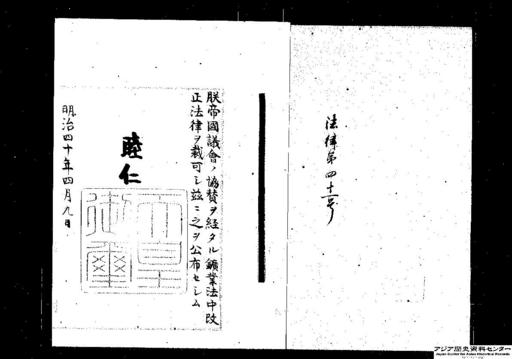 法律第四十一号
朕帝國議會ノ協賛ヲ経タル鑛業法中改
正法律ヲ裁可シ玆ニ之ヲ公布セシム
睦仁
天皇
御璽
明治四十年四月九日
アジア歴史資料センター
Japan Center for Asian Historical Records